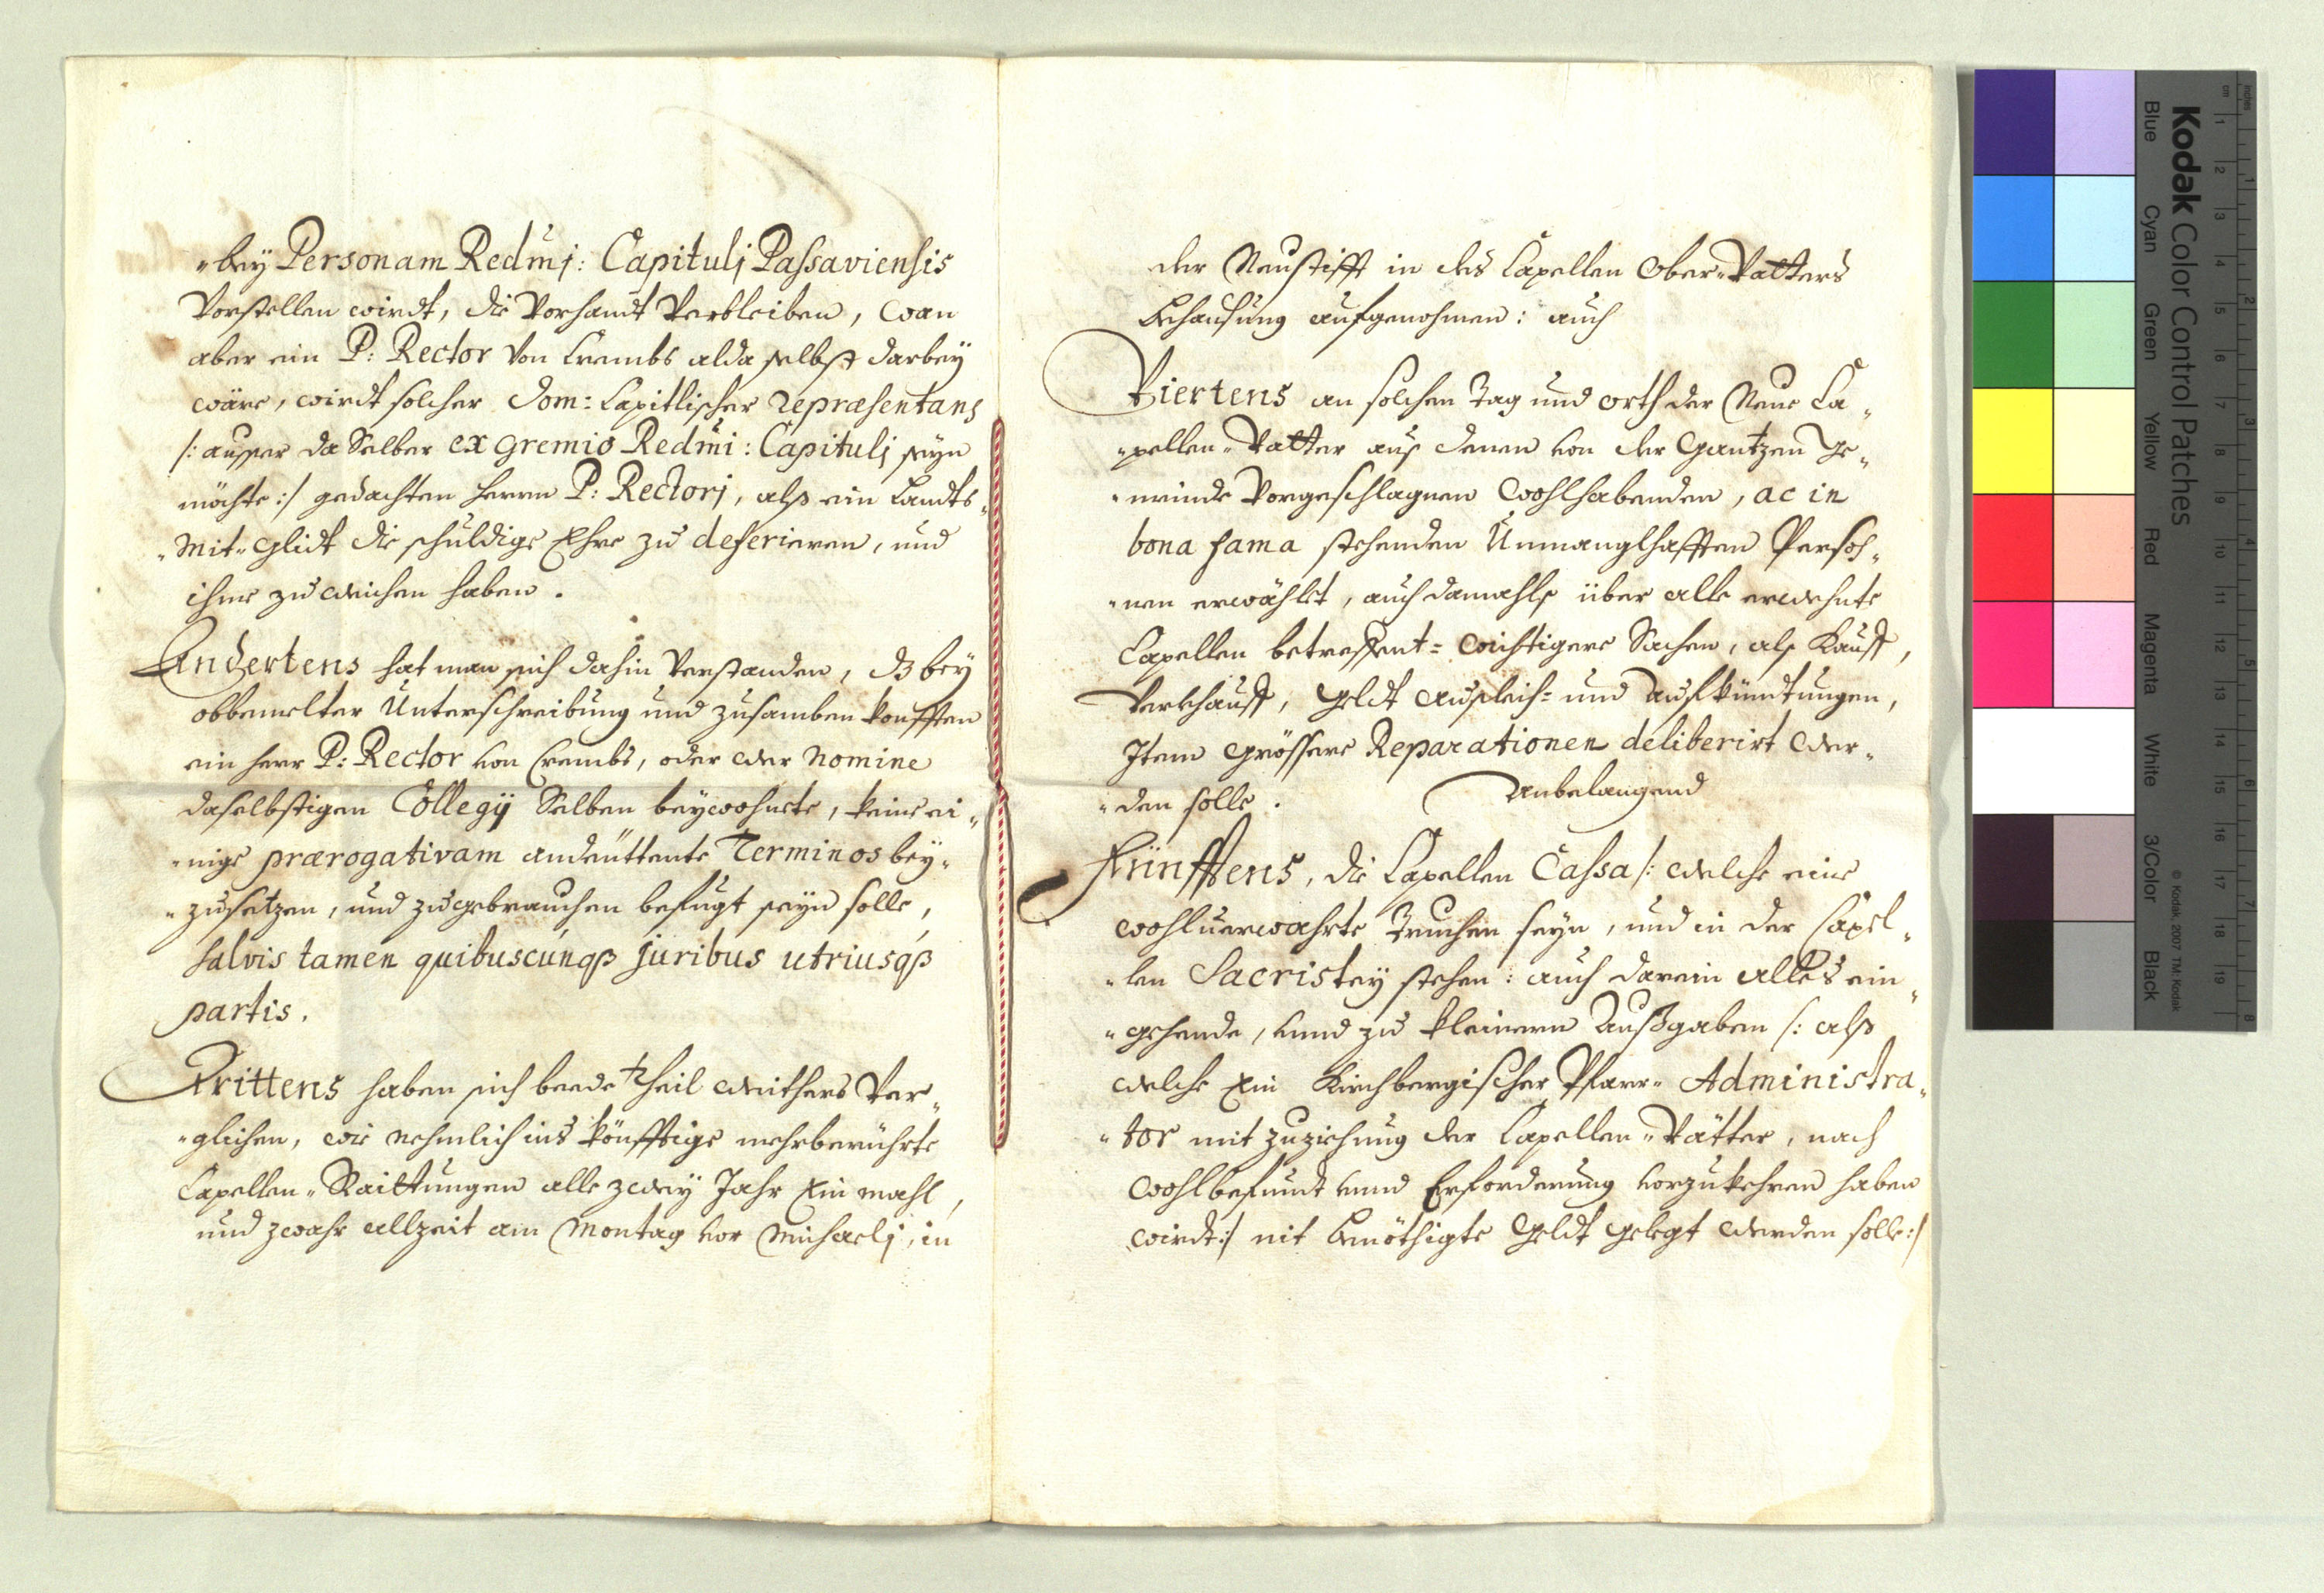 "bey Personam Redmj: Capitulj Passaviensis
Vorstellen wirdt, die Vorhandt Verbleiben, wan
aber ein P: Rector von Crembs alda selbst darbey
wäre, wirdt solcher Dom: Capitlischer repræsentans
/: ausser da Selber ex gremio Redmi: Capitulj seyn
möchte :/ gedachten herrn P: Rectorj, alß ein Landts„
„Mit„glidt die schuldige Ehre zu deferieren, und
ihme zu weichen haben.
Andertens hat man sich dahin Verstanden, dz bey
obbemelter Unterschreibung und zusamben konfften
ein herr P: Rector von Crembs, oder wer nomine
daselbstigen Collegÿ Selben beywohnete, keine ei„
„nige prærogativam andeüttente Terminos bey„
„zusetzen, und zugebrauchen befugt seyn solle,
salvis tamen quibuscúnqß juribus utriusqß
partis.
Drittens haben sich beede theil weithers Ver„
„glichen, wie nehmlich ins könfftige mehrberührte
Capellen„Raittungen alle zwey Jahr Ein mahl,
und zwahr allzeit am Montag vor Michaelj, in
der Neustifft in des Capellen Ober„Vatters
Behausung aufgenohmen: auch
Viertens an solchen Tag und orth der Neue Ca„
„pellen„Vatter aus denen von der Gantzen Ge„
„meinde Vorgeschlagnen Wohlhabenden, ac in
bona fama stehenden Unmanglhafften Persoh„
„nen erwählet, auch damahls über alle erwehnte
Capellen betreffent= Wichtigere Sachen, als Kauff,
Verkhauff, Geldt Ausleih= und Aufkündtungen,
Item Grössere Reparationen deliberirt wer„
„den solle. Anbelangend
Fünfftens, die Capellen Cassa /: welche eine
wohluerwahrte Truchen seyn, und in der Capel„
„len Sacristey stehen: auch darein alles ein„
„gehende, vnnd zu kleinern Außgaben /: alß
welche Ein Kirchbergischer Pfarr„ Administra„
„tor mit zuziehung der Capellen„Vätter, nach
wohlbefundt vnnd Erforderung vorzukehren haben
wirdt :/ nit Benöthigte Geldt gelegt werden solle :/
Kodak Color Control Patches
Blue Cyan Green Yellow Red Magenta White 3/Color Black
© Kodak, 2007 TM: Kodak
cm 1 2 3 4 5 6 7 8 9 10 11 12 13 14 15 16 17 18 19
Inches 1 2 3 4 5 6 7 8